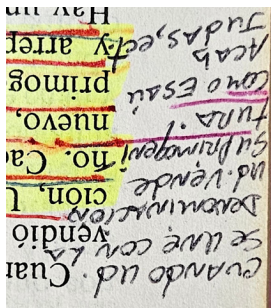 CUANDO UD
SE UNE CON LA
DENOMINACION
UD. VENDE
SU PRIMOGENI
TURA.
COMO ESAÚ
ACAB
JUDAS, ect
Cuan
vendió
ción, U
no. Cad
nuevo,
primog
y arrep
Hay un